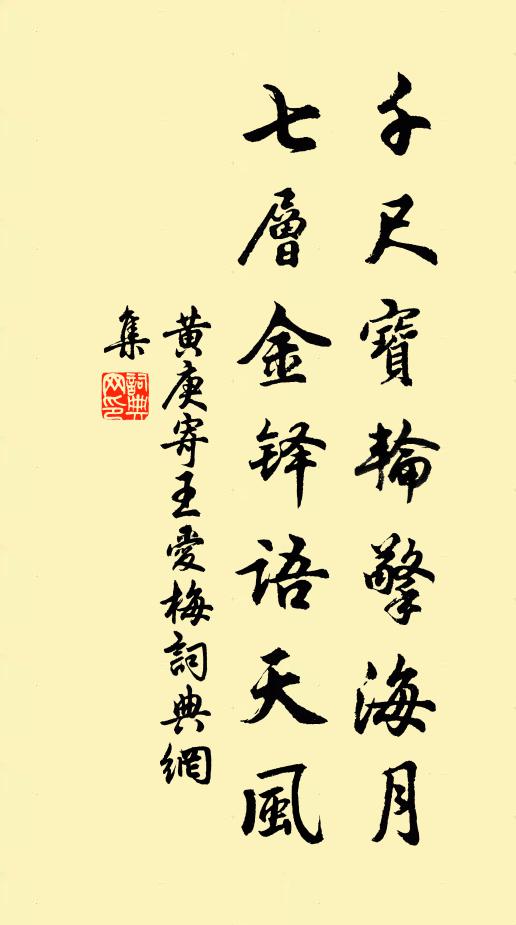 千尺寶輪擎海月
七層金铎語天風
黄庚寄王愛梅詞典網
集
詞典
网印